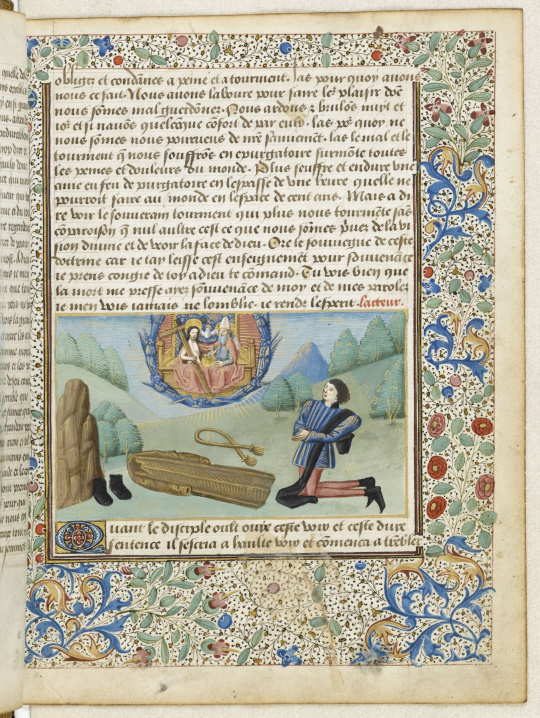 obligez et condānes a peine et a tourment. Las pour quoy auons
nous ce fait. Nous auons laboure pour faire le plaisir dōt
nous sōmes mal guerdōnez. Nous ardons & bruslōs nuyt et
ior et si nauōs quelcōque cōfort de par eulx. las po quoy ne
nous sōmes nous pourueus de nrē sauuement. las le mal et le
tourment q̄ nous souffrōs en purgatoire surmōte toutes
les peines et douleurs du monde. Plus seuffre et endure vne
ame en feu de purgatoire en lespasse dune heure quelle ne
pourroit faire au monde en lespace de cent ans. Mais a di
re voir le souuerain tourment qui plus nous tourmēte sās
cōparoison q̄ nul aultre cest ce que nous sōmes pūez de la vi
sion diuine et de veoir la face de dieu. Ore te souuiegne de ceste
doctrine car ie tay laisse cest enseignemēt pour souuenāce
ie prens congie de toy a dieu te cōmand. Tu vois bien que
la mort me presse ayes souuenāce de moy et de mes paroles
ie men vois iamais ne loublie. ie rends lesperit. Lacteur.
Quant le disciple oult ouye ceste voix et ceste dure
sentence il sescria a haulte voix et cōmenca a trēbler